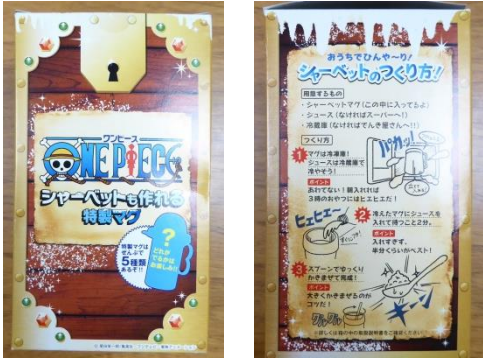 ワンピース
ONE PIECE
シャーベットも作れる
特製マグ
特製マグは
ぜんぶで
5種類
あるぞ!!
?
どれが
でるかは
お楽しみ!!
おうちでひんや〜り!
シャーベットのつくり方!
用意するもの
・シャーベットマグ(この中に入ってるよ)
・ジュース(なければスーパーへ!)
・冷蔵庫(なければでんき屋さんへ!!)
つくり方
1 マグは冷凍庫!
ジュースは冷蔵庫で
冷やそう!
ポイント
あわてない!朝入れれば
3時のおやつにはヒエヒエだ!
パカッ!
ヒェヒェ〜
2 冷えたマグにジュースを
入れて待つこと2分。
ポイント
入れすぎず、
半分くらいがベスト!
3 スプーンでゆっくり
かきまぜて完成!
ポイント
大きくかきまぜるのが
コツだ!
キーン
グルグル